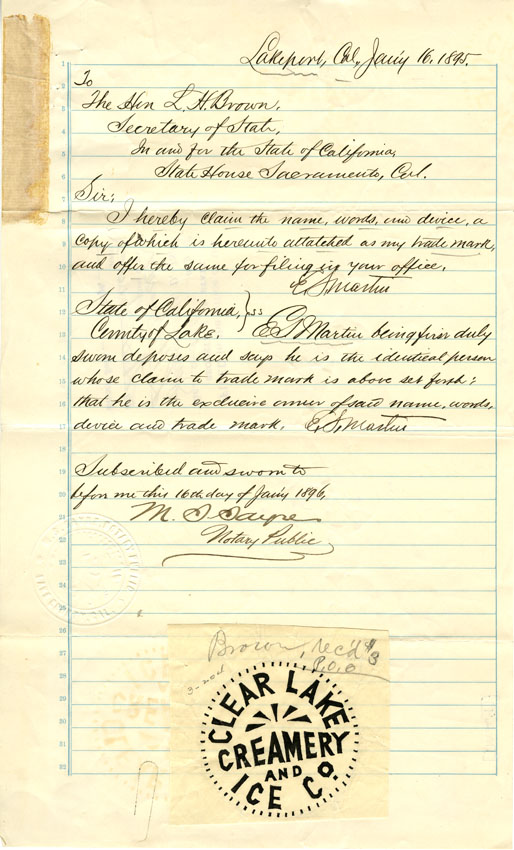 Lakeport, Cal, Jan'y 16, 1895.
To
The Hon L. H. Brown.
Secretary of State,
In and for the State of California,
State House Sacramento, Cal.
Sir;
I hereby claim the name, words, and device, a
copy of which is hereunto attatched as my trade mark,
and offer the same for filing in your office.
E. S. Martin
State of California, } ss
County of Lake. E S Martin being first duly
sworn deposes and says he is the identical person
whose claim to trade mark is above set forth;
that he is the exclusive owner of said name, words,
device and trade mark. E. S. Martin
Subscribed and sworn to
before me this 16th day of Jan'y 1896,
M. S. Sayre
Notary Public
Brown, rec'd $3
P.O.O
CLEAR LAKE
CREAMERY
AND
ICE CO.
1
2
3
4
5
6
7
8
9
10
11
12
13
14
15
16
17
18
19
20
21
22
23
24
25
26
27
28
29
30
31
32